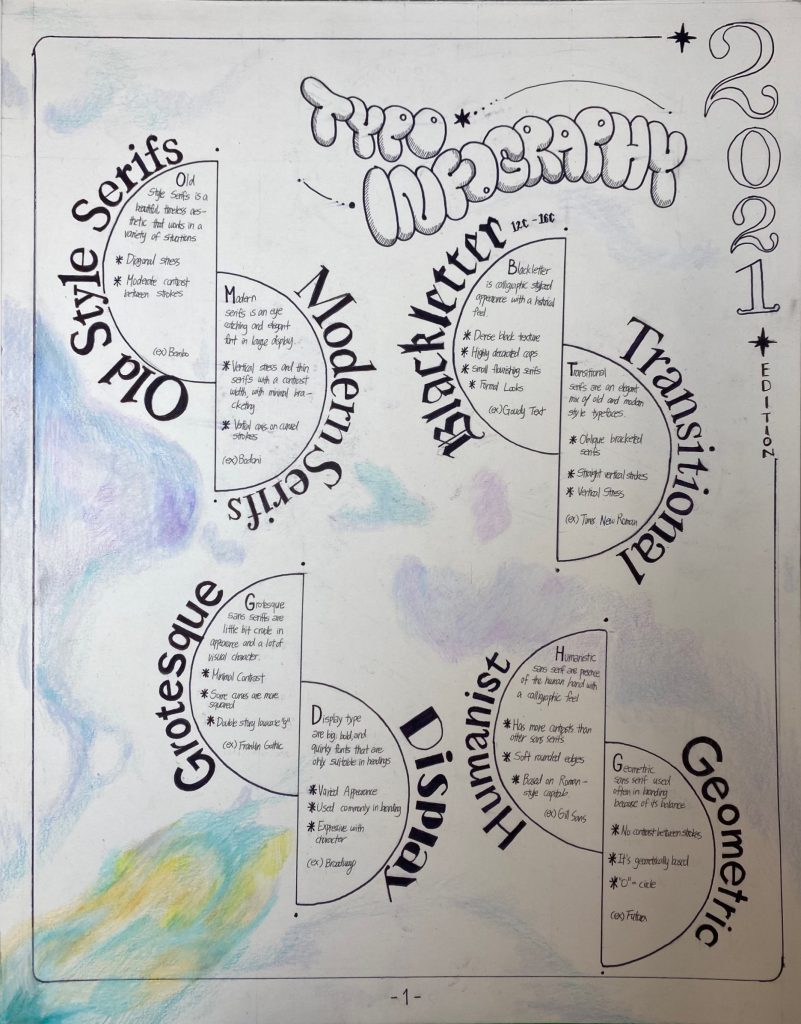 2021
EDITION
TYPO
INFOGRAPHY
Old Style Serifs
Old
Style Serifs is a
beautiful, timeless aes-
thetic that works in a
variety of situations
* Diagonal stress
* Moderate contrast
between strokes
(ex) Bembo
Modern Serifs
Modern
serifs is an eye
catching and elegant
font in large display.
* Vertical stress and thin
serifs with a contrast
width, with minimal bra-
cketing
* Vertical axis on curved
strokes
(ex) Bodoni
Blackletter
12C - 16C
Blackletter
is calligraphic stylized
appearance with a historical
feel.
* Dense black texture
* Highly decorated caps
* Small flourishing serifs
* Formal Looks
(ex) Goudy Text
Transitional
Transitional
serifs are an elegant
mix of old and modern
style typefaces.
* Oblique bracketed
serifs
* Straight vertical strokes
* Vertical Stress
(ex) Times New Roman
Grotesque
Grotesque
sans seriffs are
little bit crude in
appearance and a lot of
visual character.
* Minimal Contrast
* Some curves are more
squared
* Double story lowercase "g"
(ex) Franklin Gothic
Display
Display type
are big, bold, and
quirky fonts that are
only suitable in headings
* Varied Appearance
* Used commonly in branding
* Expressive with
character
(ex) Broadway
Humanist
Humanistic
sans serif are
of the human hand with
a calligraphic feel
* Has more contrasts than
other sans serifs
* Soft rounded edges
* Based on Roman-
style capitals
(ex) Gill Sans
Geometric
Geometric
sans serif used
often in branding
because of its balance
* No contrast between strokes
* It's geometrically based
* "O" = circle
(ex) Futura
-1-